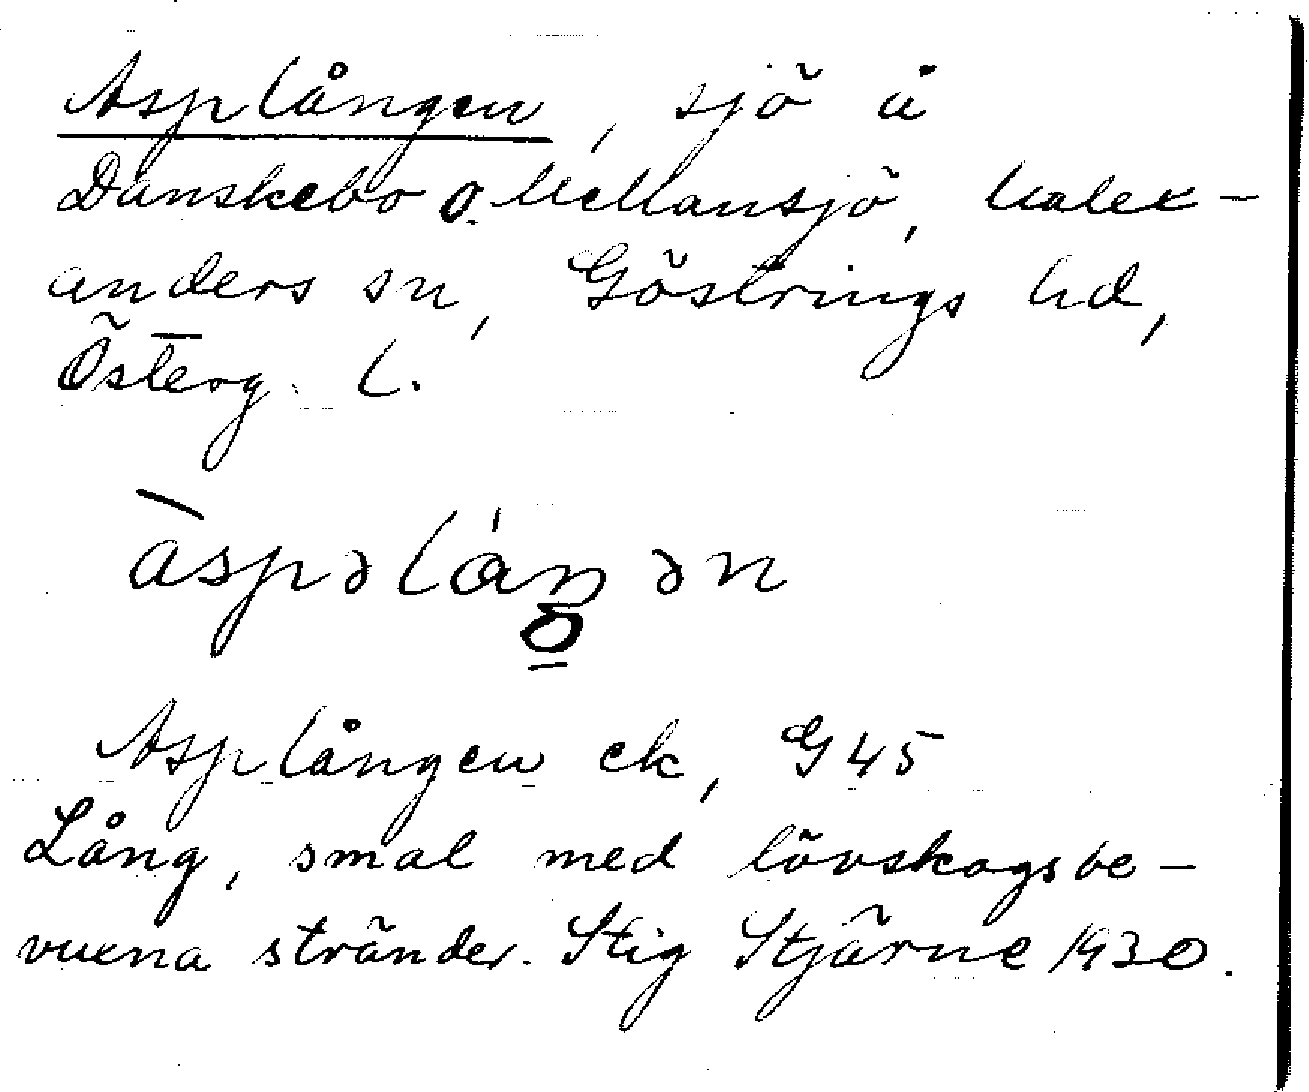 Asplången, sjö å
Danskebo o. Mellansjö, Malex-
anders sn, Göstrings hd,
Österg. l.
àspəlåŋən
Asplången ek, G 45
Lång, smal med lövskogsbe-
vuxna stränder. Stig Stjärne 1930.